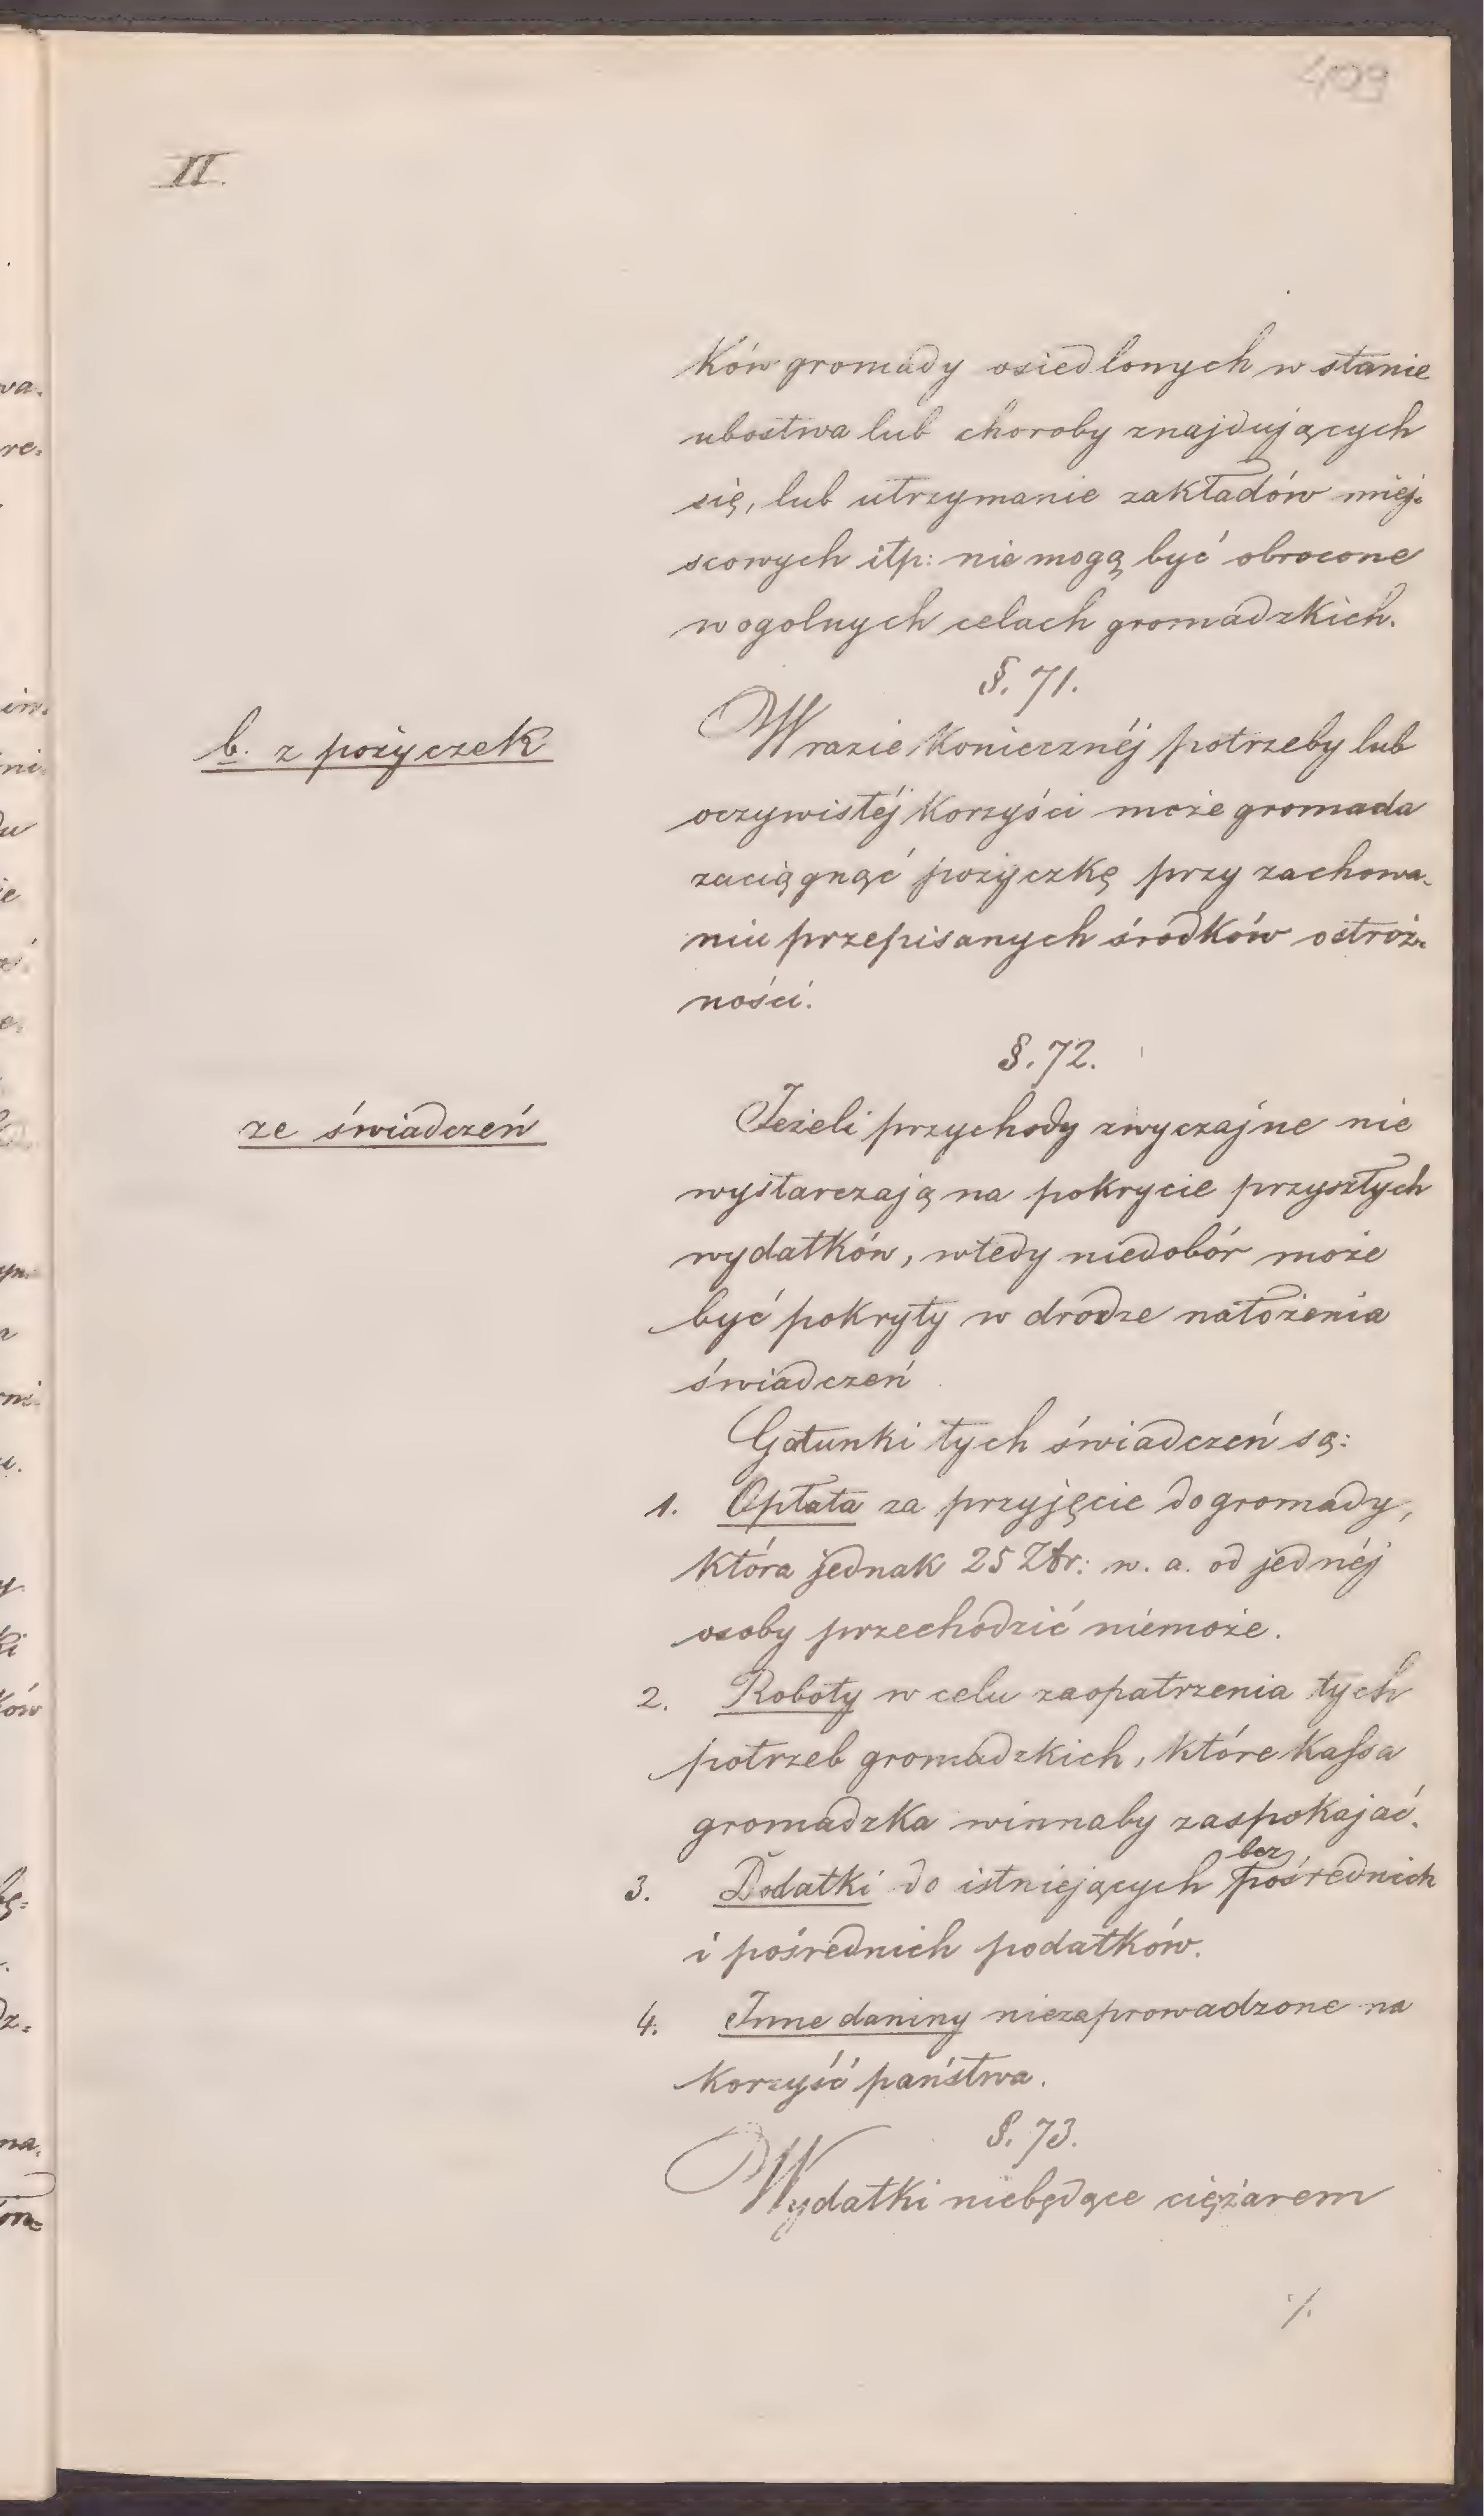 409
II.
ków gromady osiedlonych w stanie
ubostwa lub choroby znajdujących
się, lub utrzymanie zakładów miej-
scowych itp: nie mogą być obrocone
w ogolnych celach gromadzkich.
§. 71.
b. z pożyczek
W razie koniecznéj potrzeby lub
oczywistéj korzyści może gromada
zaciągnąć pożyczkę przy zachowa-
niu przepisanych środków ostroż-
ności.
§. 72.
ze świadczeń
Jeżeli przychody zwyczajne nie
wystarczają na pokrycie przyszłych
wydatków, wtedy niedobór może
być pokryty w drodze nałożenia
świadczeń
Gatunki tych świadczeń są:
1. Opłata za przyjęcie do gromady,
która jednak 25 Złr: w. a. od jednéj
osoby przechodzić niemoże.
2. Roboty w celu zaopatrzenia tych
potrzeb gromadzkich, które kassa
gromadzka winnaby zaspokajać.
3. Dodatki do istniejących bezpośrednich
i pośrednich podatków.
4. Inne daniny niezaprowadzone na
korzyść państwa.
§. 73.
Wydatki niebędące ciężarem
./.